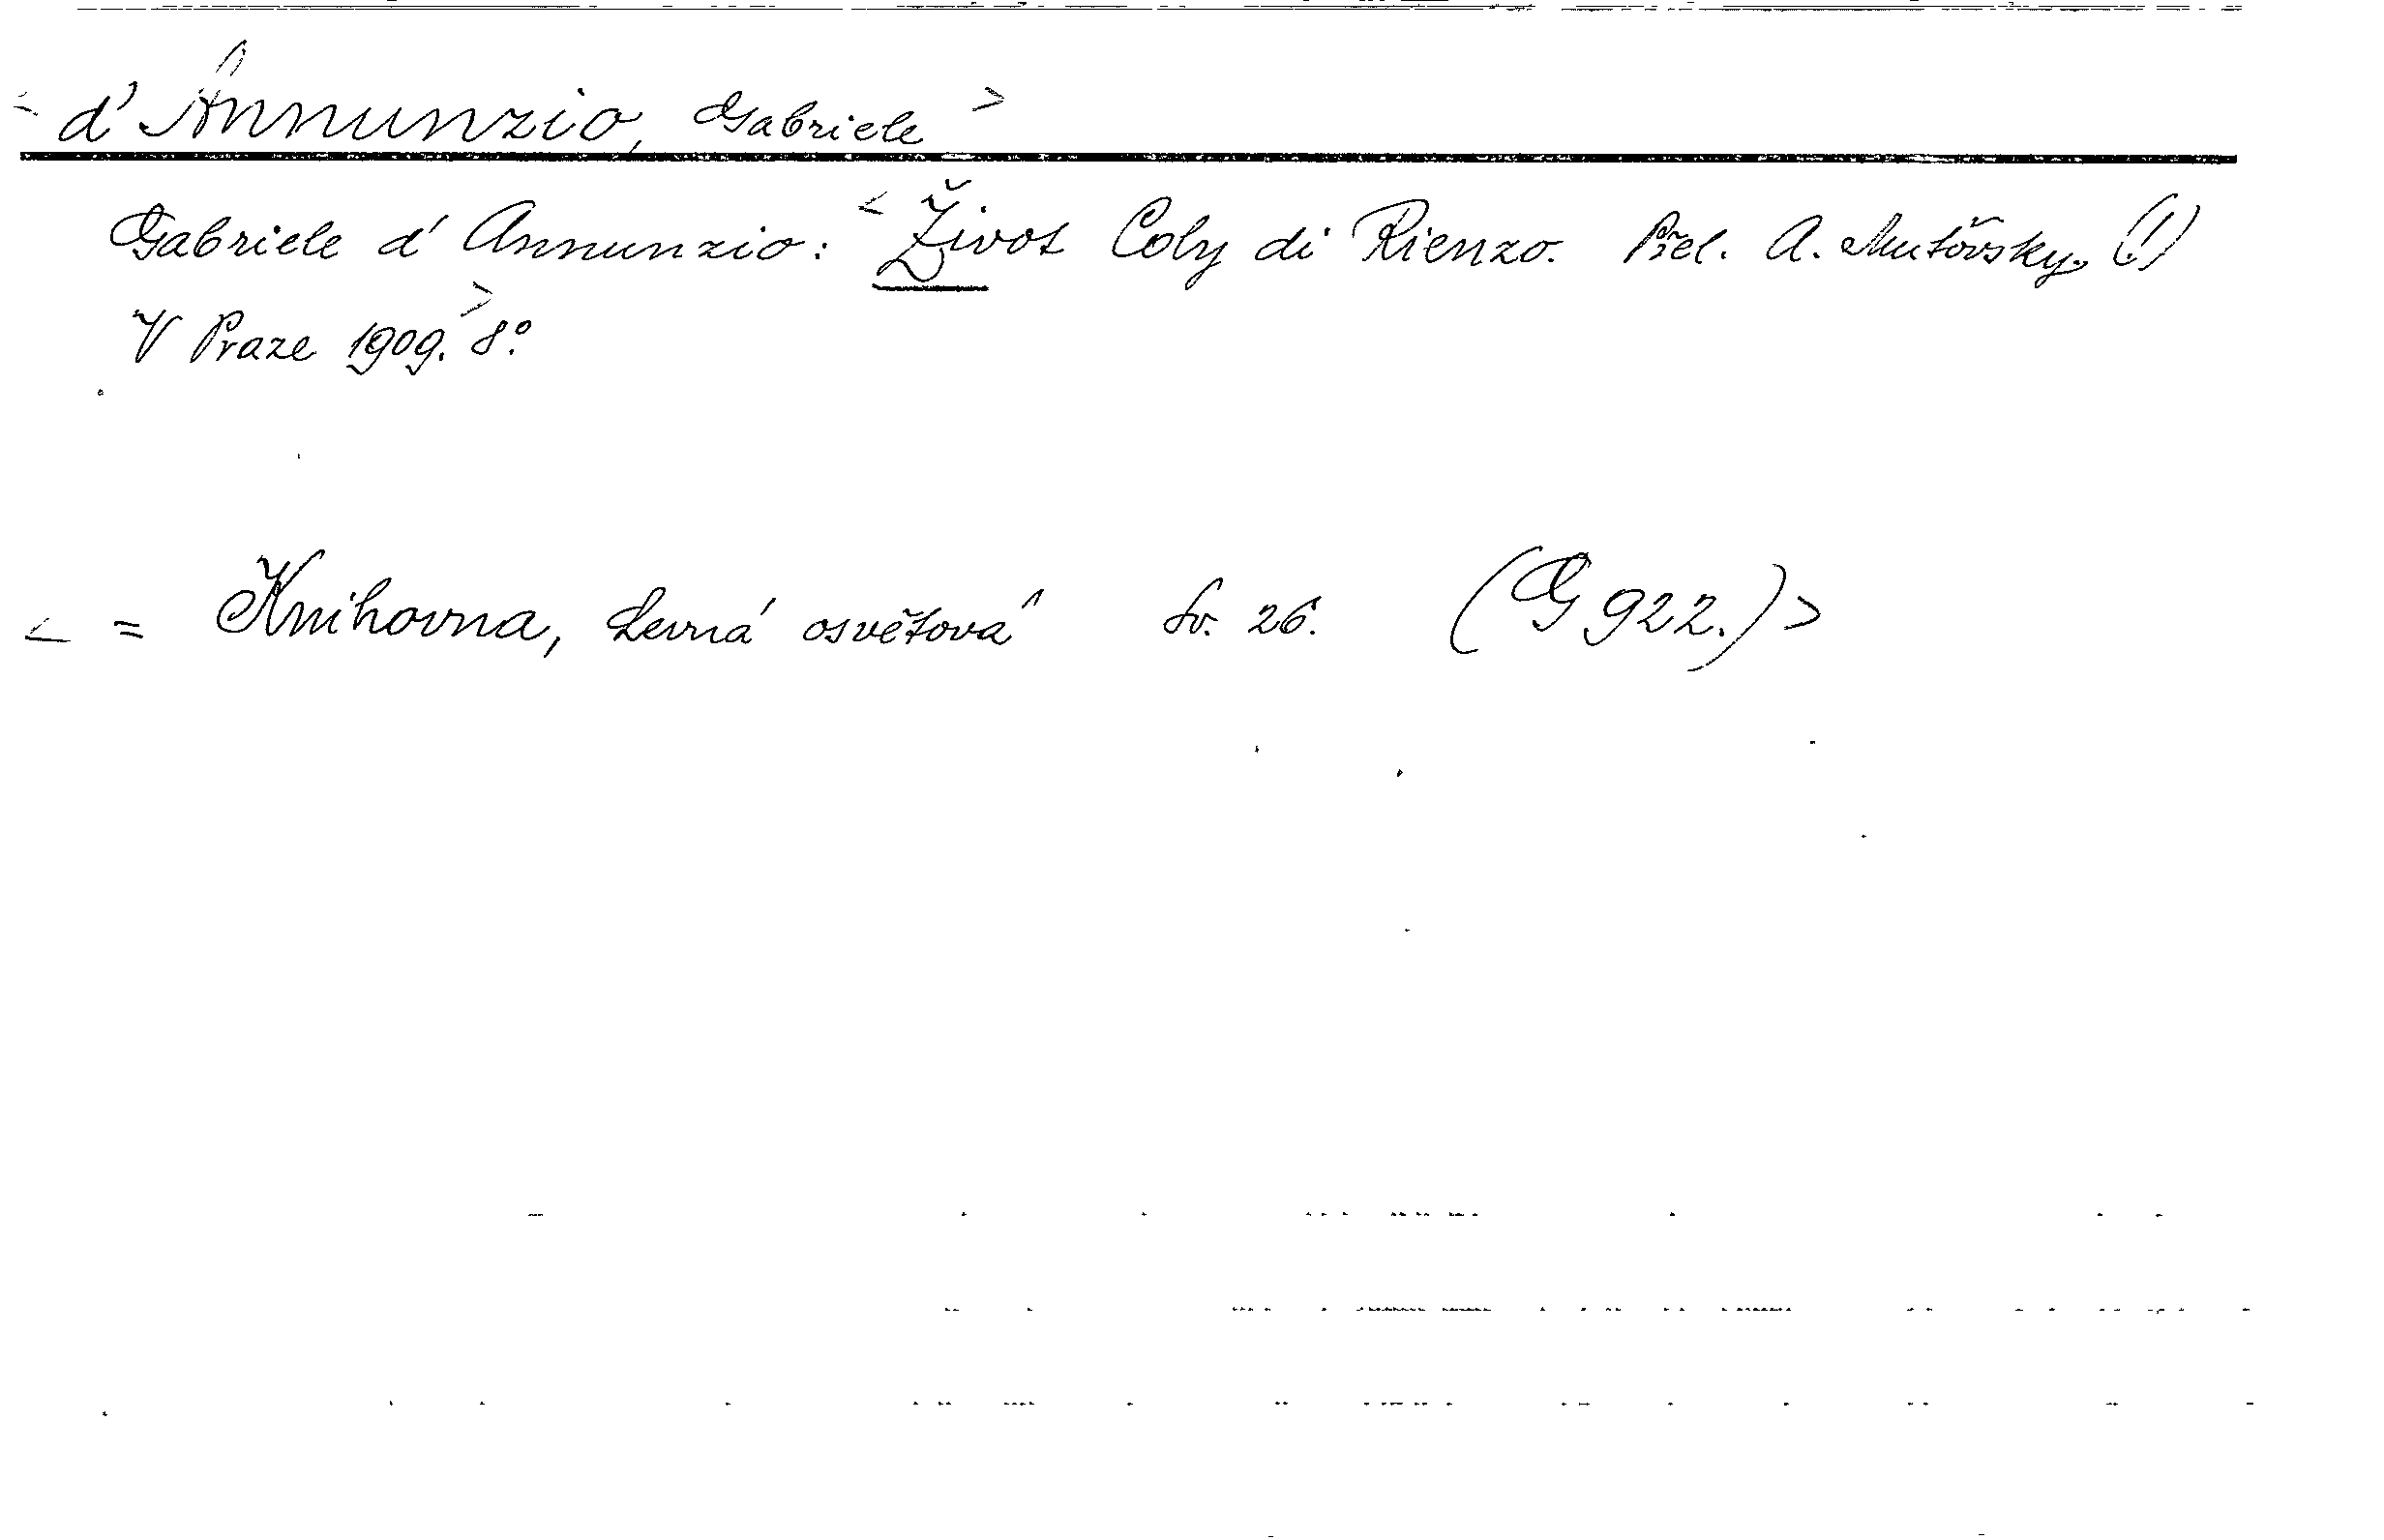 < d'Annunzio, Gabriele >
Gabriele d'Annunzio: < Život Coly di Rienzo. Přel. A. Mutővsky. (!)
V Praze 1909. > 8°.
< = Knihovna, Levná osvětová Sv. 26. (G 922.) >